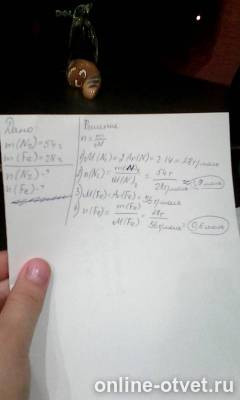 Дано:
m(N₂)=54г
m(Fe)=28г
n(N₂)-?
n(Fe)-?
Решение
n=m/M
1) M(N₂)=2Ar(N)=2·14=28г/моль
2) n(N₂)=m(N)₂/M(N)₂=54г/28г/моль≈
3) M(Fe)=Ar(Fe)=56г/моль
4) n(Fe)=m(Fe)/M(Fe)=28г/56г/моль=0,5моль
online-otvet.ru